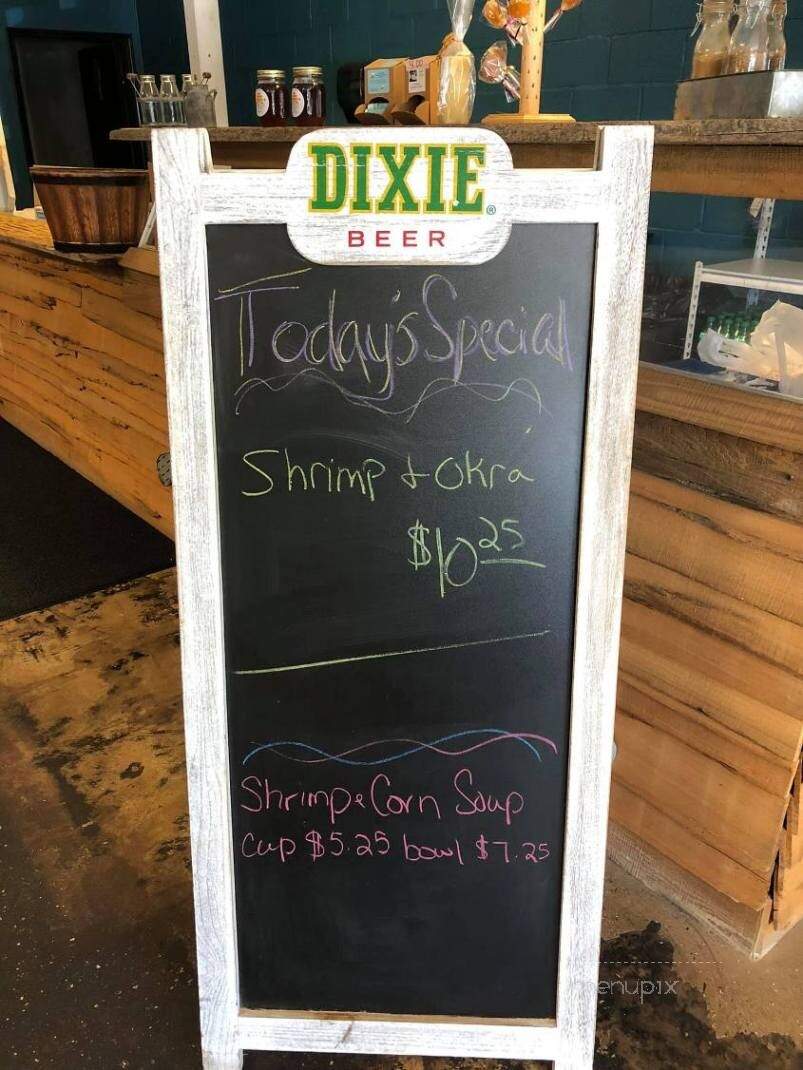 DIXIE®
BEER
Today's Special
Shrimp & Okra
$10 25
Shrimp & Corn Soup
Cup $5.25 bowl $7.25
menupix